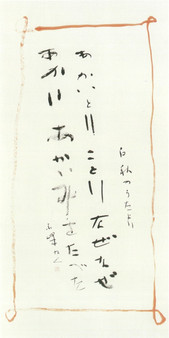 白秋のうたより
あかいとり ことり なぜなぜ
あかい あかいみをたべた